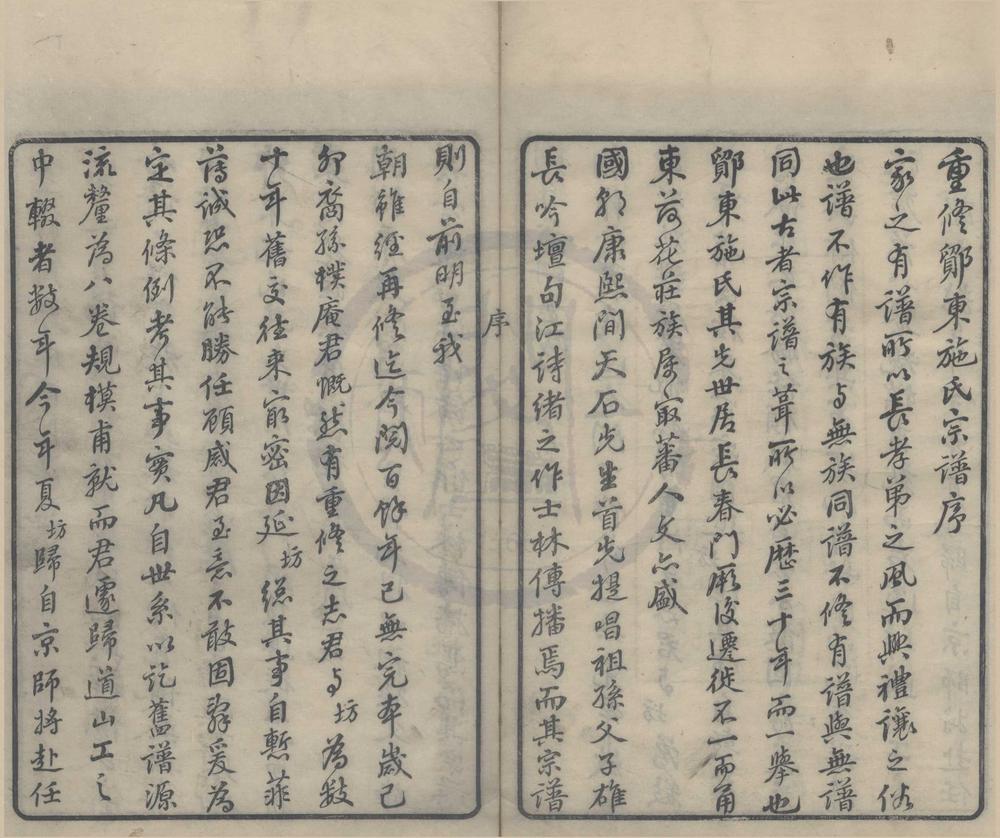 重修鄮東施氏宗譜序
家之有譜所以長孝弟之風而興禮讓之俗
也譜不作有族与無族同譜不修有譜與無譜
同此古者宗譜之葺所以必歷三十年而一舉也
鄮東施氏其先世居長春門厥後遷徙不一而甬
東荷花莊族居寂蕃人文亦盛
國朝康熙間天石先生首先提唱祖孫父子雄
長吟壇句江詩緒之作士林傳播焉而其宗譜
序
則自前明至我
朝雖經再修迄今閱百餘年已無完本歲己
卯裔孫樸庵君慨然有重修之志君与坊為數
十年舊交往來寂密因延坊總其事自慙菲
薄誠恐不能勝任顧感君至意不敢固辭爰為
定其條例考其事實凡自世系以訖舊譜源
流釐為八卷規模甫就而君遽歸道山工之
中輟者數年今年夏坊歸自京師將赴任